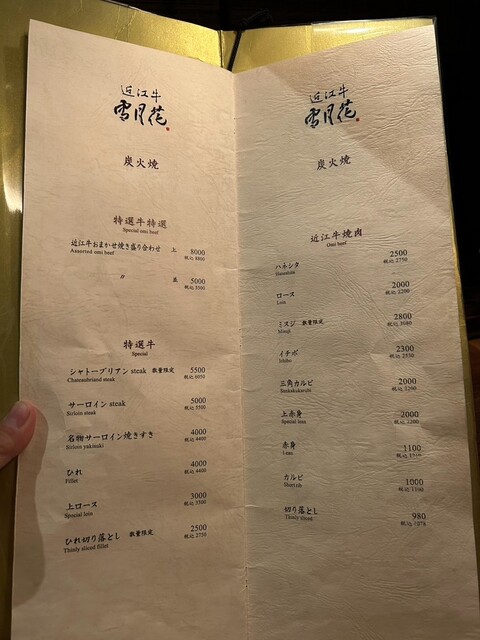 近江牛
雪月花
炭火焼
特選牛特選
Special omi beef
近江牛おまかせ焼き盛り合わせ 上 8000
Assorted omi beef 税込 8800
〃 5000
税込 5500
特選牛
Special
シャトーブリアン steak 数量限定 5500
Chateaubriand steak 税込 6050
サーロイン steak 5000
Sirloin steak 税込 5500
名物サーロイン焼きすき 4000
Sirloin yakisuki 税込 4400
ひれ 4000
Fillet 税込 4400
上ロース 3000
Special loin 税込 3300
ひれ切り落とし 数量限定 2500
Thinly sliced fillet 税込 2750
近江牛
雪月花
炭火焼
近江牛焼肉
Omi beef
ハネシタ 2500
Haneshita 税込 2750
ロース 2000
Loin 税込 2200
ミスジ 数量限定 2800
Misuji 税込 3080
イチボ 2300
Ichibo 税込 2530
三角カルビ 2000
Sankakukarubi 税込 2200
上赤身 2000
Special lean 税込 2200
赤身 1100
Lean 税込
カルビ 1000
Short rib 税込 1100
切り落とし 980
Thinly sliced 税込 1078